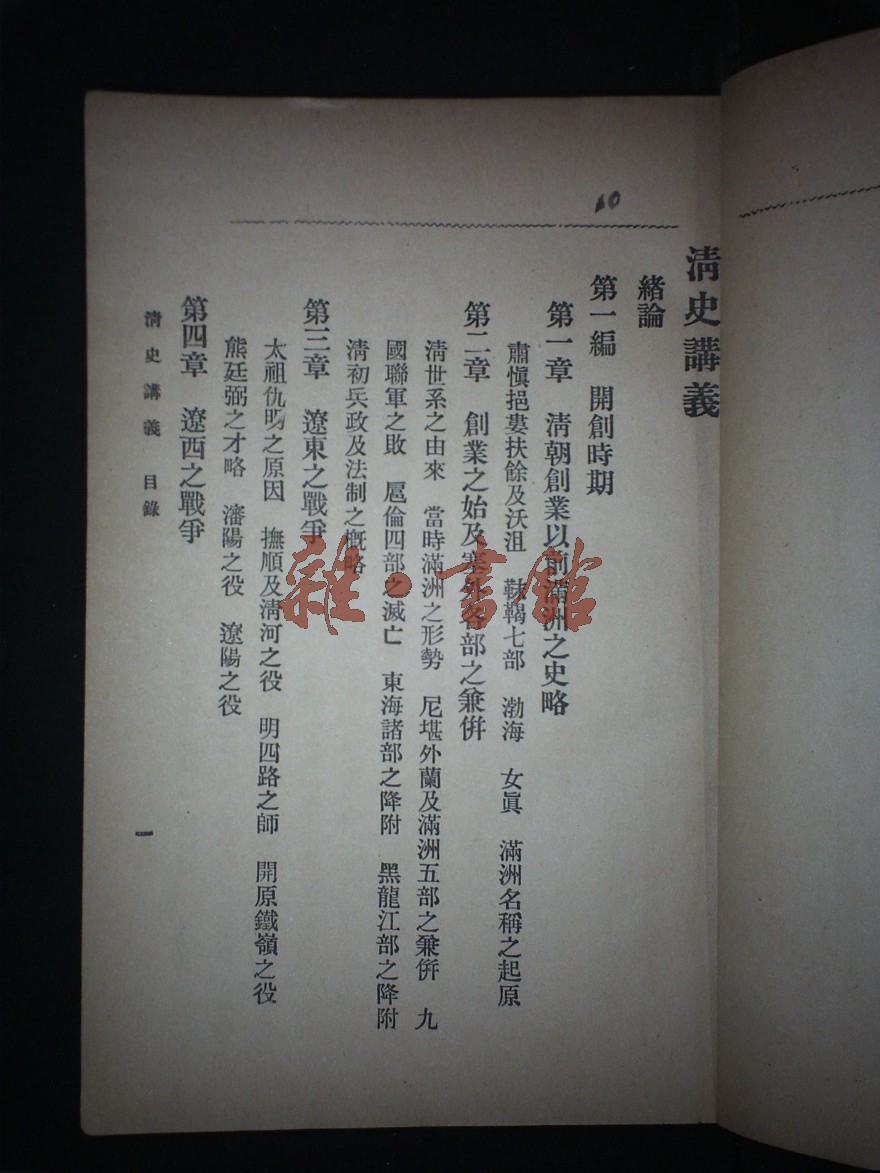 10
清史講義
緒論
第一編 開創時期
第一章 清朝創業以前滿洲之史略
肅愼挹婁扶餘及沃沮 靺鞨七部 渤海 女眞 滿洲名稱之起原
第二章 創業之始及塞外各部之兼併
清世系之由來 當時滿洲之形勢 尼堪外蘭及滿洲五部之兼併 九
國聯軍之敗 扈倫四部之滅亡 東海諸部之降附 黑龍江部之降附
清初兵政及法制之槪略
第三章 遼東之戰爭
太祖仇明之原因 撫順及清河之役 明四路之師 開原鐵嶺之役
熊廷弼之才略 瀋陽之役 遼陽之役
第四章 遼西之戰爭
清史講義 目錄
一
雜·書館